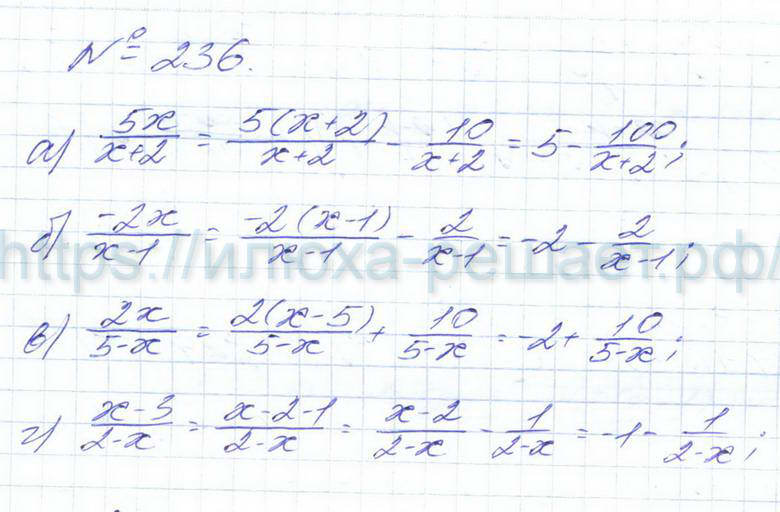 № 236.
а) 5x/(x+2) = 5(x+2)/(x+2) - 10/(x+2) = 5 - 100/(x+2);
б) -2x/(x-1) = -2(x-1)/(x-1) - 2/(x-1) = -2 - 2/(x-1);
https://илюха-решает.рф/
в) 2x/(5-x) = 2(x-5)/(5-x) + 10/(5-x) = -2 + 10/(5-x);
г) (x-3)/(2-x) = (x-2-1)/(2-x) = (x-2)/(2-x) - 1/(2-x) = -1 - 1/(2-x);